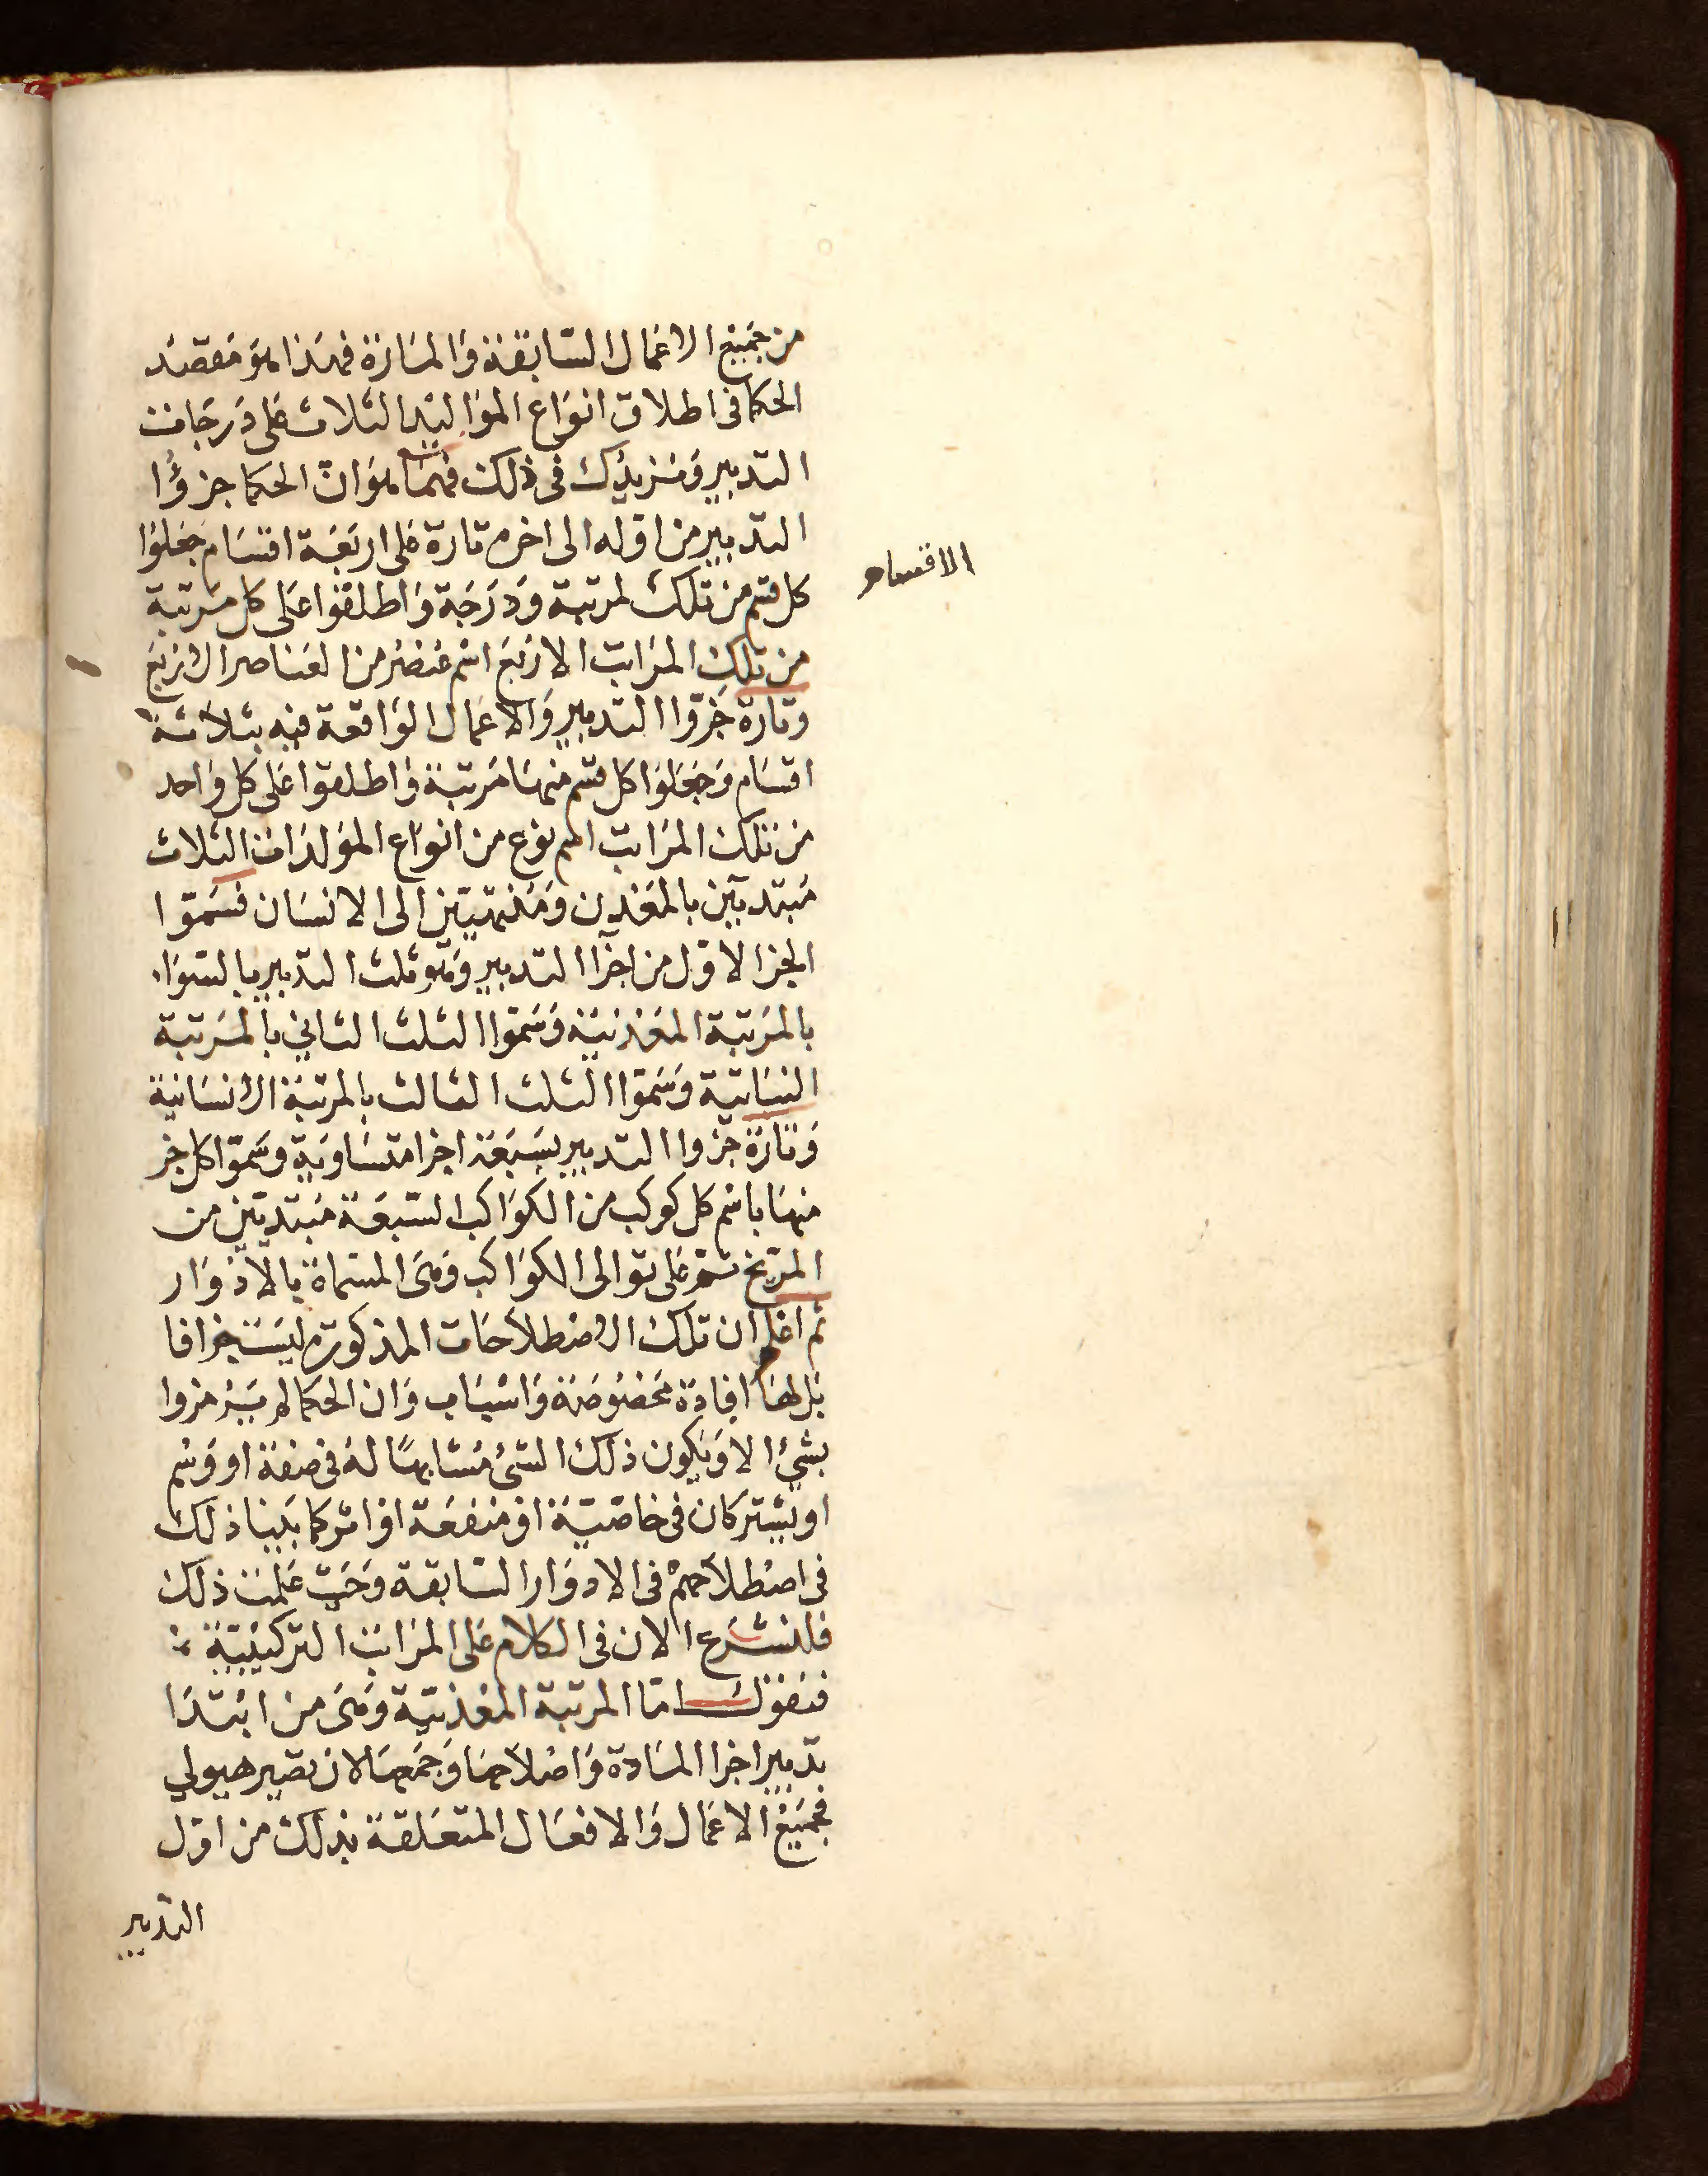 من جميع الاعمال السابقة والمارة فهذا هو مقصد
الحكما فى اطلاق انواع المواليد الثلاث على درجات
التدبير ونزيدك فى ذلك فهما هو ان الحكما جزؤا
التدبير من اوله الى اخره تارة على اربعة اقسام جعلوا
الاقسام
كل قسم من تلك لمرتبة ودرجة واطلقوا على كل مرتبة
من تلك المراتب الاربع اسم عنصر من العناصر الاربع
وتارة جزوا التدبير والاعمال الواقعة فيه بثلاثة
اقسام وجعلوا كل قسم منها مرتبة واطلقوا على كل واحد
من تلك المراتب اسم نوع من انواع المولدات الثلاث
مبتديين بالمعدن ومنتهيين الى الانسان فسموا
الجزا الاول من اجزا التدبير وهو ثلث التدبير بالسواء
بالمرتبة المعدنية وسموا الثلث الثاني بالمرتبة
النباتية وسموا الثلث الثالث بالمرتبة الانسانية
وتارة جزوا التدبير بسبعة اجزا متساوية وسموا كل جز
منها باسم كل كوكب من الكواكب السبعة مبتديين من
المريخ ثم على توالى الكواكب وهى المسماة بالادوار
ثم اعلم ان تلك الاصطلاحات المذكورة ليست جزافا
بل لها افادة مخصوصة واسباب وان الحكما لم يرمزوا
بشئ الا ويكون ذلك الشئ مشابها له فى صفة او وسم
او يشتركان فى خاصية او منفعة او اثر كما بينا ذلك
فى اصطلاحهم فى الادوار السابقة وحيث علمت ذلك
فلنشرع الان فى الكلام على المراتب التركيبية
فنقول اما المرتبة المعدنية وهى من ابتدا
تدبير اجزا المادة واصلاحها وجمعها لان تصير هيولي
فجميع الاعمال والافعال المتعلقة بذلك من اول
التدبير